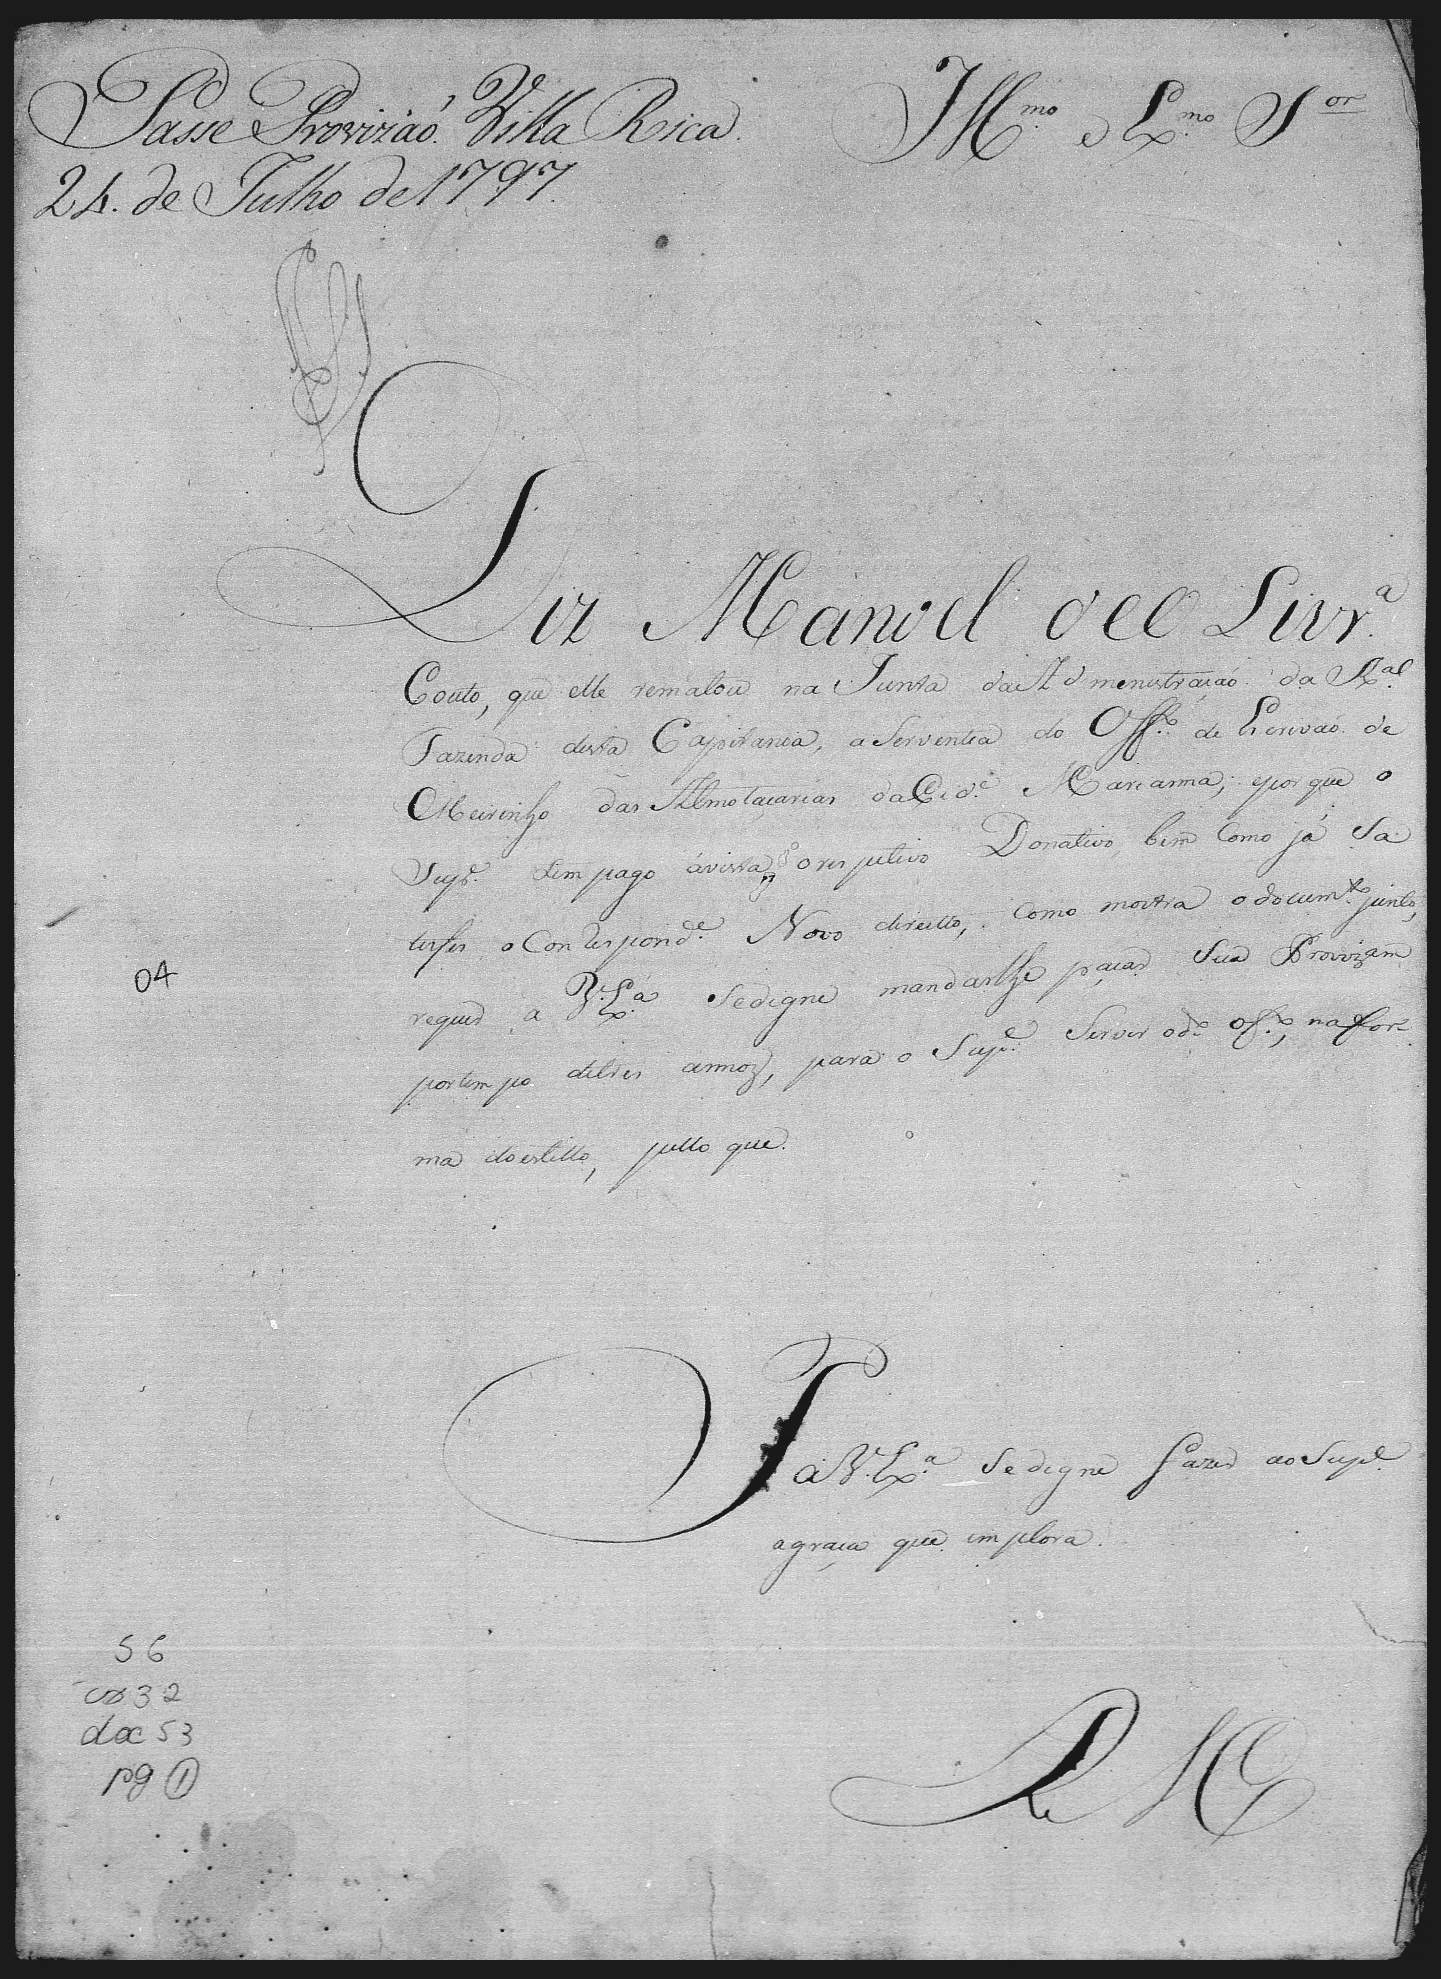 Passe Provizaó. Villa Rica.
24. de Julho de 1797.
Ill.mo e Ex.mo S.or
Diz Manoel de Olivr.a
Couto, que elle rematou na Junta da Admenistraçaó da R.al
Fazenda desta Capitania, a Serventia do Off.o de Escrivaó de
Meirinho das Almotaçarias da Cid.e Marianna, eporque o
Supe. tem pago ávista o respetivo Donativo, bem Como já Sa
tisfes o Correspond.e Novo direitto, Como mostra o docum.to junto,
requer a V. Ex.a Sedigne mandarlhe paçar Sua Provizam
portempo detres annos, para o Supe. Servir o d.o Off.o, na for
ma do estillo, pello que.
P. a V. Ex.a Sedigne fazer ao Supe.
agraça que implora.
E R M.ce
04
56
cx 32
doc 53
pg 1